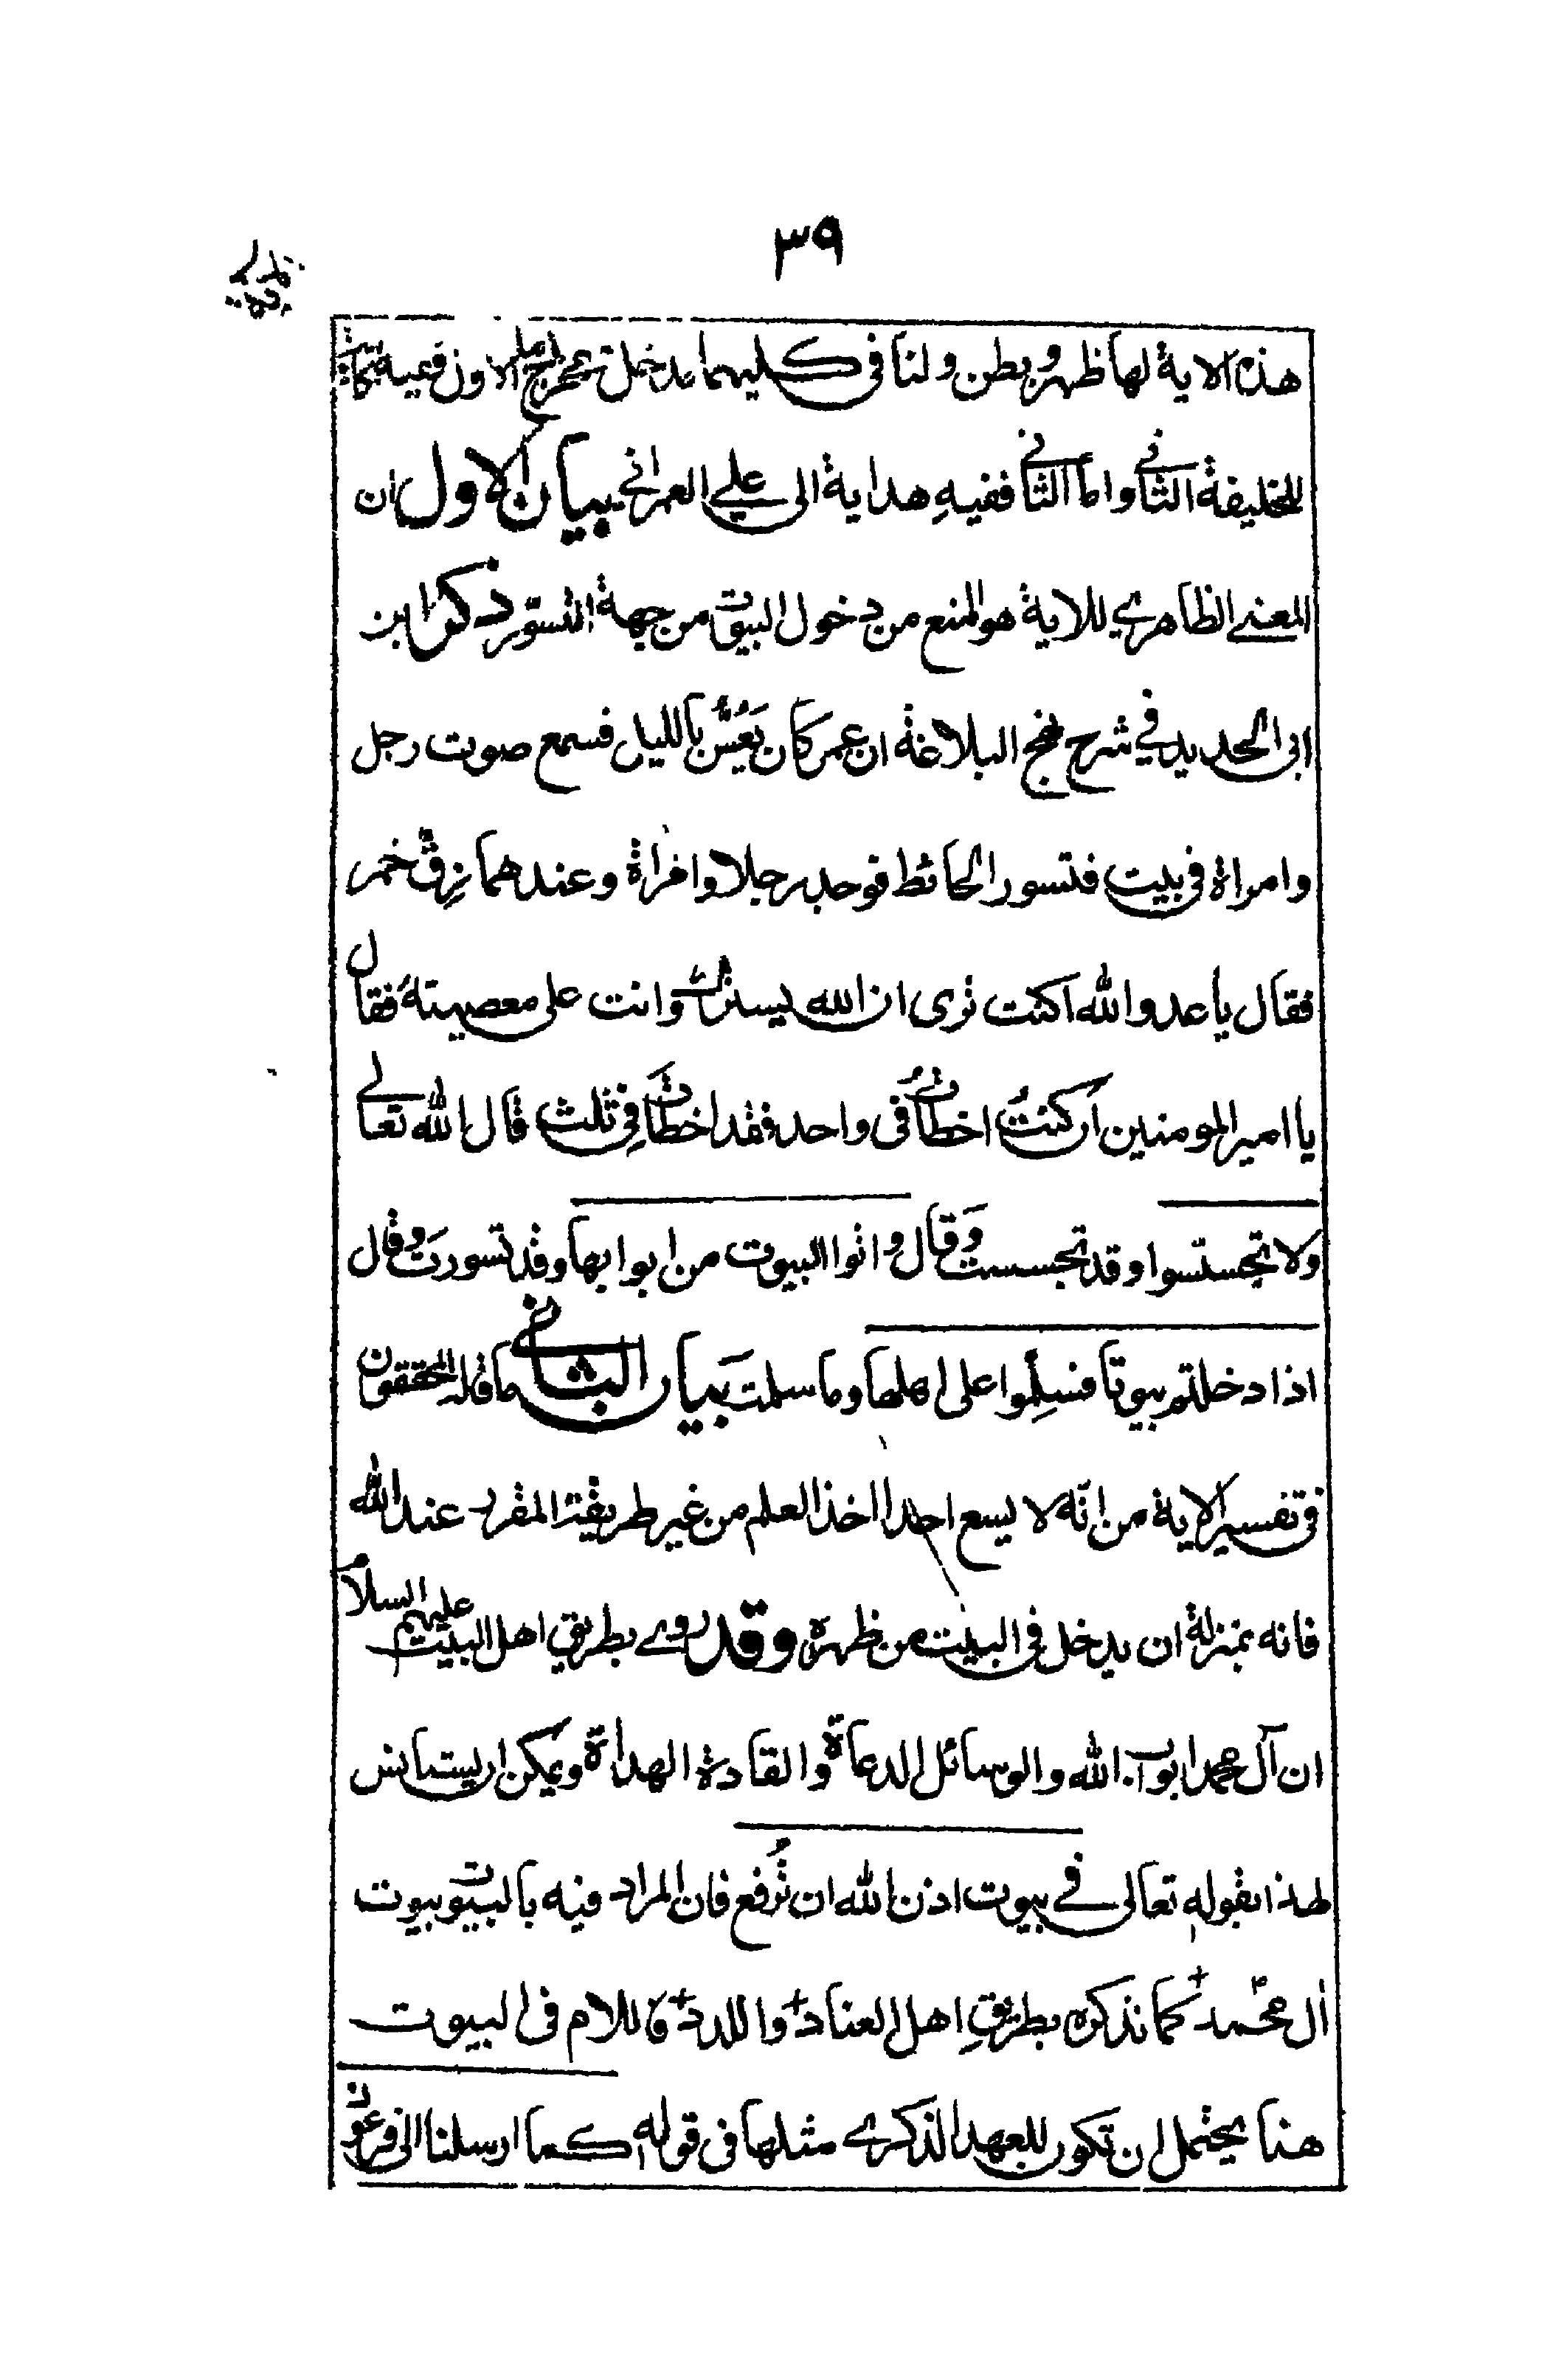 ٣٩
هذه الاية لها ظهر و بطن و لنا فى كليهما مدخل الاول ففيه
للخليفة الثانى واما الثانى ففيهِ هداية الى على العمرانى بيان الاول ان
المعنى الظاهرى للاية هو المنع من دخول البيوت من جهة التسوّر ذكر ابن
ابى الحديد فى شرح نهج البلاغة ان عمر كان يَعُسُّ بالليل فسمع صوت رجل
وامراة فى بيت فتسور الحائط فوجد رجلا وامراة وعندهما زِقّ خمر
فقال يا عدو الله اكنت ترى ان الله يسترك وانت على معصيته فقال
يا امير المومنين ان كنتُ اخطأتُ فى واحد فقد اخطأتَ فِى ثلث قال الله تعالى
ولا تجسّسوا وقد تجسست وَقال واتوا البيوت من ابوابها وقد تسورت وقال
اذا دخلتم بيوتا فسلِّموا على اهلها وما سلمت بيان الثانى ما قاله المحققون
فى تفسير الاية من انّه لا يسع احدا اخذ العلم من غير طريقته المقرر عند الله
فانه بمنزلة ان يدخل فى البيت من ظهره وقد روى بطريق اهل البيت عليهم السلام
ان آل محمد ابواب الله والوسائل الدعاة والقادة الهداة ويمكن ان يستانس
لهذا بقوله تعالى فى بيوت اذن الله ان تُرفع فان المراد فيه بالبيوت بيوت
اٰل محمّد كما نذكره بطريقِ اهل العناد واللدد فاللام فى البيوت
هنا يحتمل ان تكون للعهد الذكرى مثلها فى قوله كما ارسلنا الى فرعون